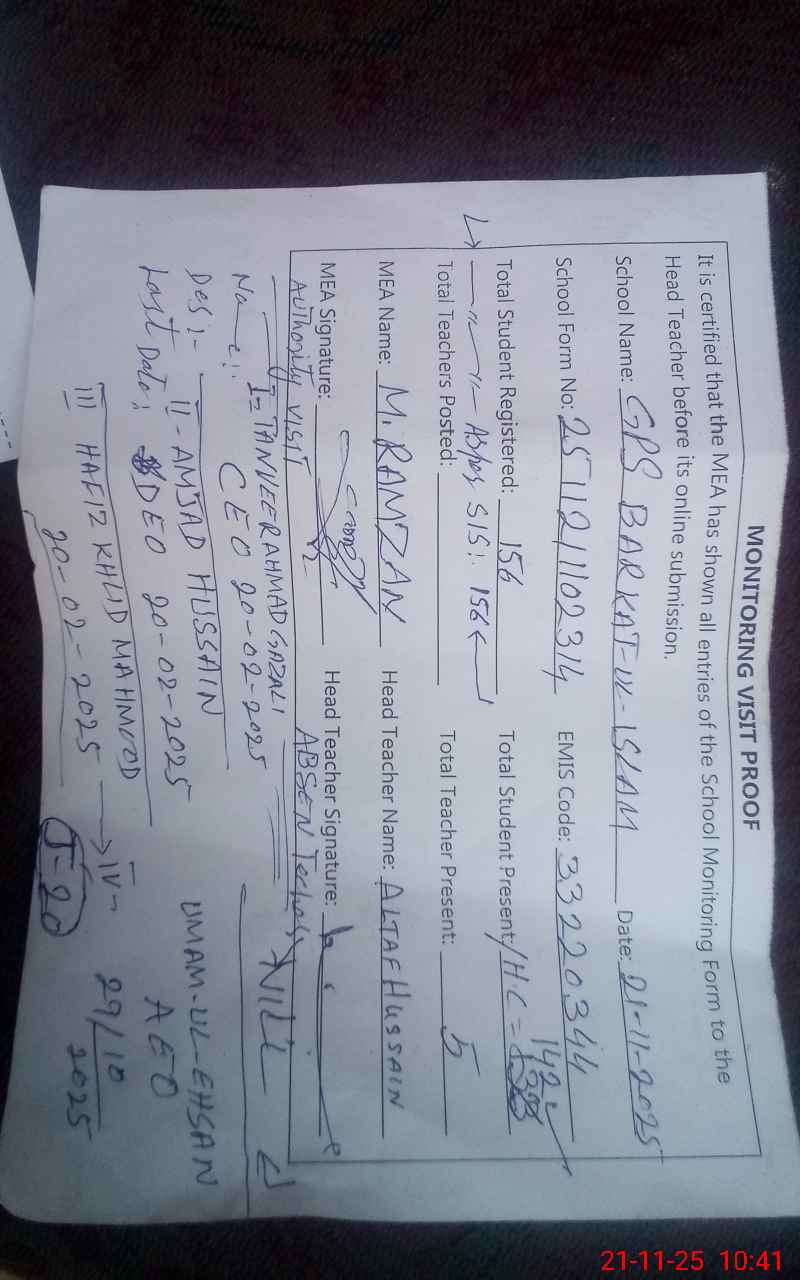 MONITORING VISIT PROOF
It is certified that the MEA has shown all entries of the School Monitoring Form to the
Head Teacher before its online submission.
School Name: GPS BARKAT-UL-ISLAM Date: 21-11-2025
School Form No: 25112111102314 EMIS Code: 33220344
Total Student Registered: 156 Total Student Present: /H.C = 142
SIS: 156
Total Teachers Posted: Total Teacher Present: 5
MEA Name: M. RAMZAN Head Teacher Name: ALTAF HUSSAIN
MEA Signature: Head Teacher Signature:
AUTHORITY VISIT ABSENT NILL
Name:- I- TANVEER AHMAD GAZALI
CEO 20-02-2025
Des:- II- AMJAD HUSSAIN
Last Date: DEO 20-02-2025
III HAFIZ KHLID MAHMOOD
20-02-2025
IV-
UMAM-UL-EHSAN
AEO
29/10
2025
J-20
21-11-25 10:41